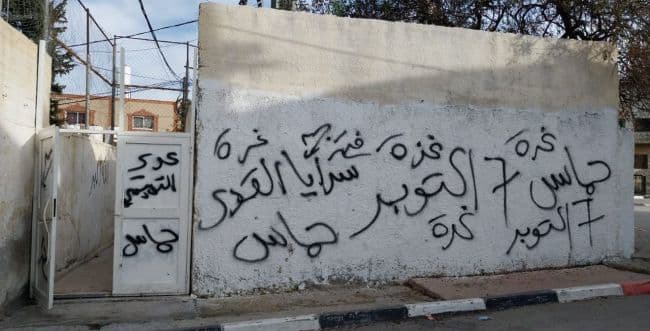 غزة
حماس
7 اكتوبر
غزة
7 اكتوبر
غزة
سرايا القدس
غزة
حماس
عدي
التميمي
حماس